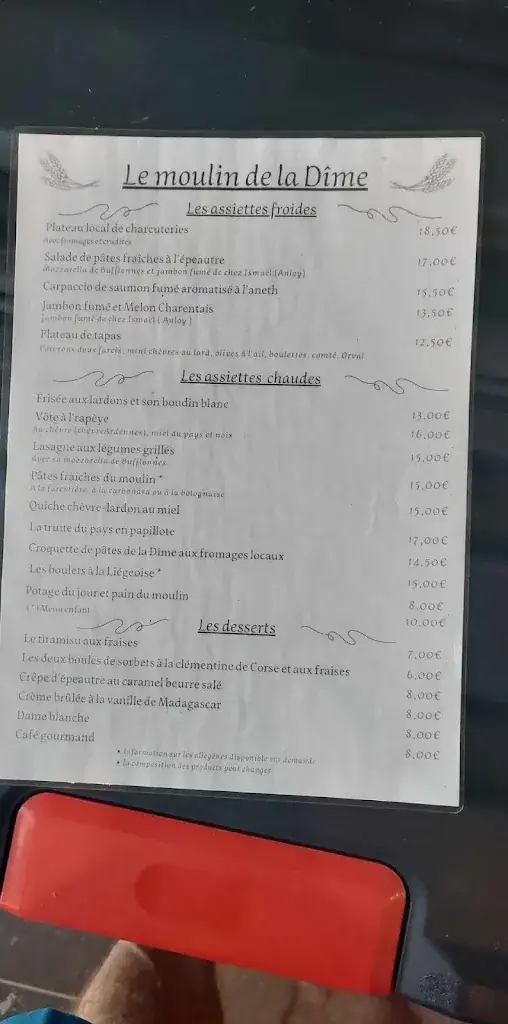 Le moulin de la Dîme
Les assiettes froides
Plateau local de charcuteries 18,50€
Avec fromages et crudités
Salade de pâtes fraîches à l'épeautre 17,00€
Mozzarella de Bufflonnes et jambon fumé de chez Ismaël (Anloy)
Carpaccio de saumon fumé aromatisé à l'aneth 15,50€
Jambon fumé et Melon Charentais 13,50€
Jambon fumé de chez Ismaël ( Anloy )
Plateau de tapas 12,50€
Poivrons doux farcis, mini chèvres au lard, olives à l'ail, boulettes, comté, Orval
Les assiettes chaudes
Frisée aux lardons et son boudin blanc 13,00€
Vôte à l'rapèye 16,00€
Au chèvre (chèvreArdennes), miel du pays et noix
Lasagne aux légumes grillés 15,00€
Avec sa mozzarella de Bufflonnes
Pâtes fraiches du moulin * 15,00€
A la forestière, à la carbonara ou à la bolognaise
Quiche chèvre-lardon au miel 15,00€
La truite du pays en papillote 17,00€
Croquette de pâtes de la Dîme aux fromages locaux 14,50€
Les boulets à la Liégeoise * 15,00€
Potage du jour et pain du moulin 8,00€
( * ) Menu enfant 10,00€
Les desserts
Le tiramisu aux fraises 7,00€
Les deux boules de sorbets à la clémentine de Corse et aux fraises 6,00€
Crêpe d'épeautre au caramel beurre salé 8,00€
Crème brûlée à la vanille de Madagascar 8,00€
Dame blanche 8,00€
Café gourmand 8,00€
• Information sur les allegènes disponible sur demande
• la composition des produits peut changer